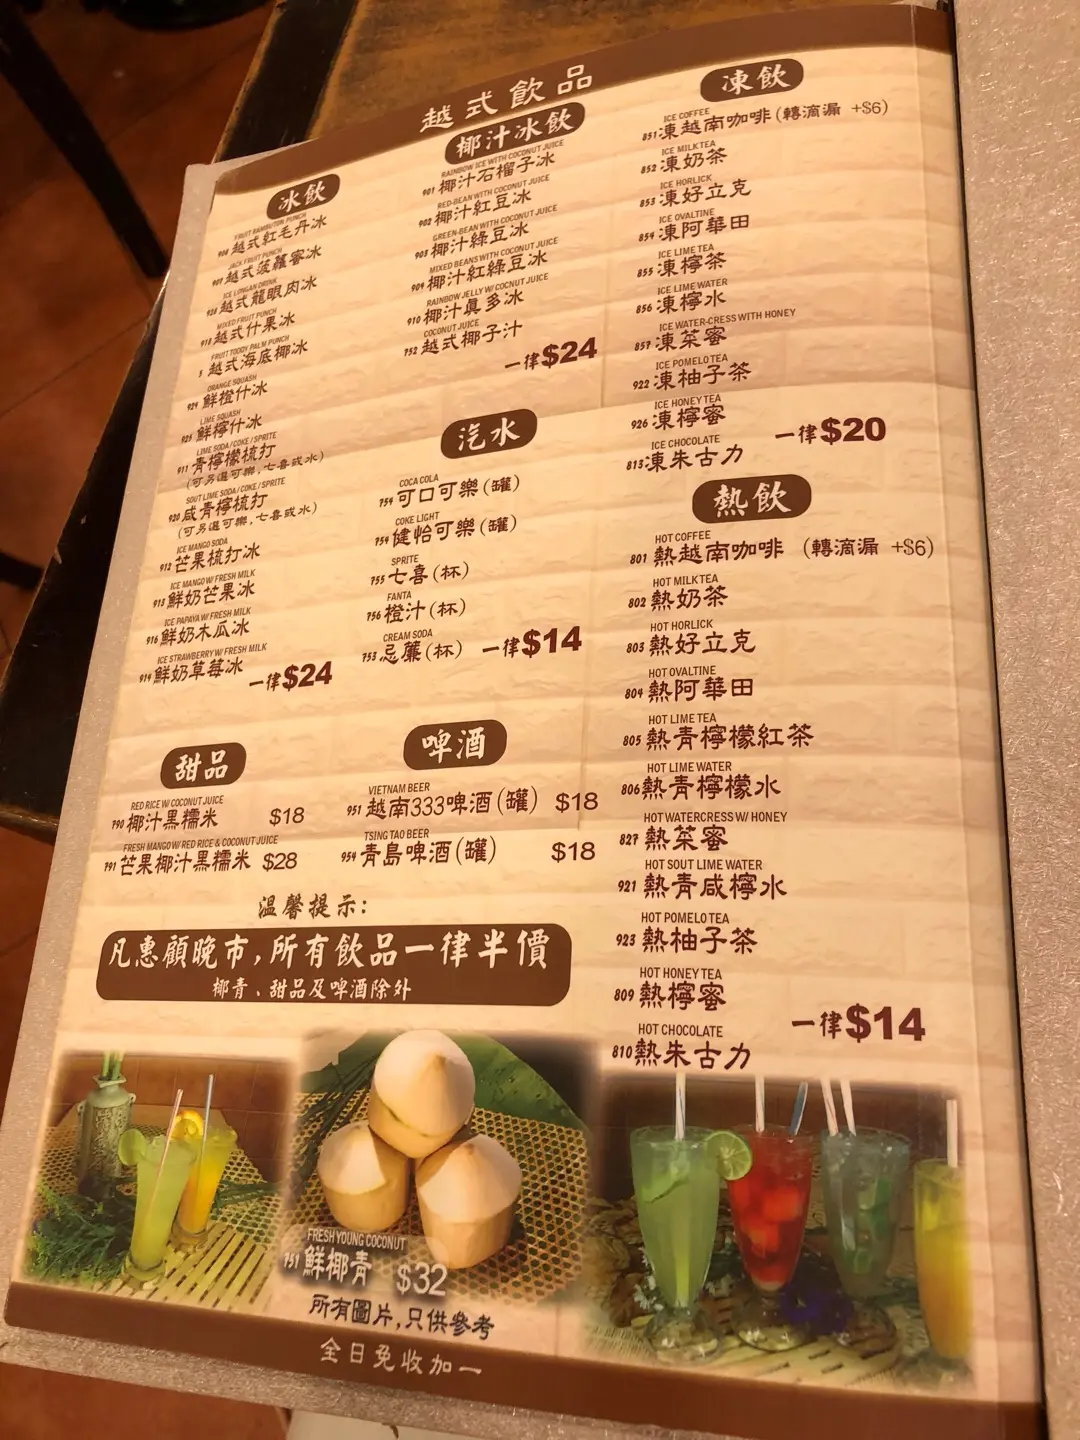 越式飲品
冰飲
FRUIT RAMBUTION PUNCH
908 越式紅毛丹冰
JACK FRUIT PUNCH
907 越式菠蘿蜜冰
ICE LONGAN DRINK
928 越式龍眼肉冰
MIXED FRUIT PUNCH
918 越式什果冰
FRUIT TODDY PALM PUNCH
越式海底椰冰
ORANGE SQUASH
924 鮮橙什冰
LIME SQUASH
925 鮮檸什冰
LIME SODA/COKE/SPRITE
911 青檸檬梳打
(可另選可樂,七喜或水)
SOUT LIME SODA/COKE/SPRITE
920 咸青檸梳打
(可另選可樂,七喜或水)
ICE MANGO SODA
912 芒果梳打冰
ICE MANGO W/ FRESH MILK
913 鮮奶芒果冰
ICE PAPAYA W/ FRESH MILK
916 鮮奶木瓜冰
ICE STRAWBERRY W/ FRESH MILK
914 鮮奶草莓冰
一律$24
椰汁冰飲
RAINBOW ICE WITH COCONUT JUICE
901 椰汁石榴子冰
RED-BEAN WITH COCONUT JUICE
902 椰汁紅豆冰
GREEN-BEAN WITH COCONUT JUICE
903 椰汁綠豆冰
MIXED BEANS WITH COCONUT JUICE
904 椰汁紅綠豆冰
RAINBOW JELLY W/ COCNUT JUICE
910 椰汁真多冰
COCONUT JUICE
752 越式椰子汁
一律$24
汽水
COCA COLA
754 可口可樂(罐)
COKE LIGHT
754 健怡可樂(罐)
SPRITE
755 七喜(杯)
FANTA
756 橙汁(杯)
CREAM SODA
753 忌廉(杯)
一律$14
凍飲
ICE COFFEE
851 凍越南咖啡(轉滴漏 +$6)
ICE MILK TEA
852 凍奶茶
ICE HORLICK
853 凍好立克
ICE OVALTINE
854 凍阿華田
ICE LIME TEA
855 凍檸茶
ICE LIME WATER
856 凍檸水
ICE WATER-CRESS WITH HONEY
857 凍菜蜜
ICE POMELO TEA
922 凍柚子茶
ICE HONEY TEA
926 凍檸蜜
ICE CHOCOLATE
813 凍朱古力
一律$20
熱飲
HOT COFFEE
801 熱越南咖啡 (轉滴漏 +$6)
HOT MILK TEA
802 熱奶茶
HOT HORLICK
803 熱好立克
HOT OVALTINE
804 熱阿華田
HOT LIME TEA
805 熱青檸檬紅茶
HOT LIME WATER
806 熱青檸檬水
HOT WATERCRESS W/ HONEY
827 熱菜蜜
HOT SOUT LIME WATER
921 熱青咸檸水
HOT POMELO TEA
923 熱柚子茶
HOT HONEY TEA
809 熱檸蜜
HOT CHOCOLATE
810 熱朱古力
一律$14
甜品
RED RICE W/ COCONUT JUICE
790 椰汁黑糯米 $18
FRESH MANGO W/ RED RICE & COCONUT JUICE
791 芒果椰汁黑糯米 $28
啤酒
VIETNAM BEER
951 越南333啤酒(罐) $18
TSING TAO BEER
954 青島啤酒(罐) $18
溫馨提示:
凡惠顧晚市,所有飲品一律半價
椰青、甜品及啤酒除外
FRESH YOUNG COCONUT
751 鮮椰青 $32
所有圖片,只供參考
全日免收加一